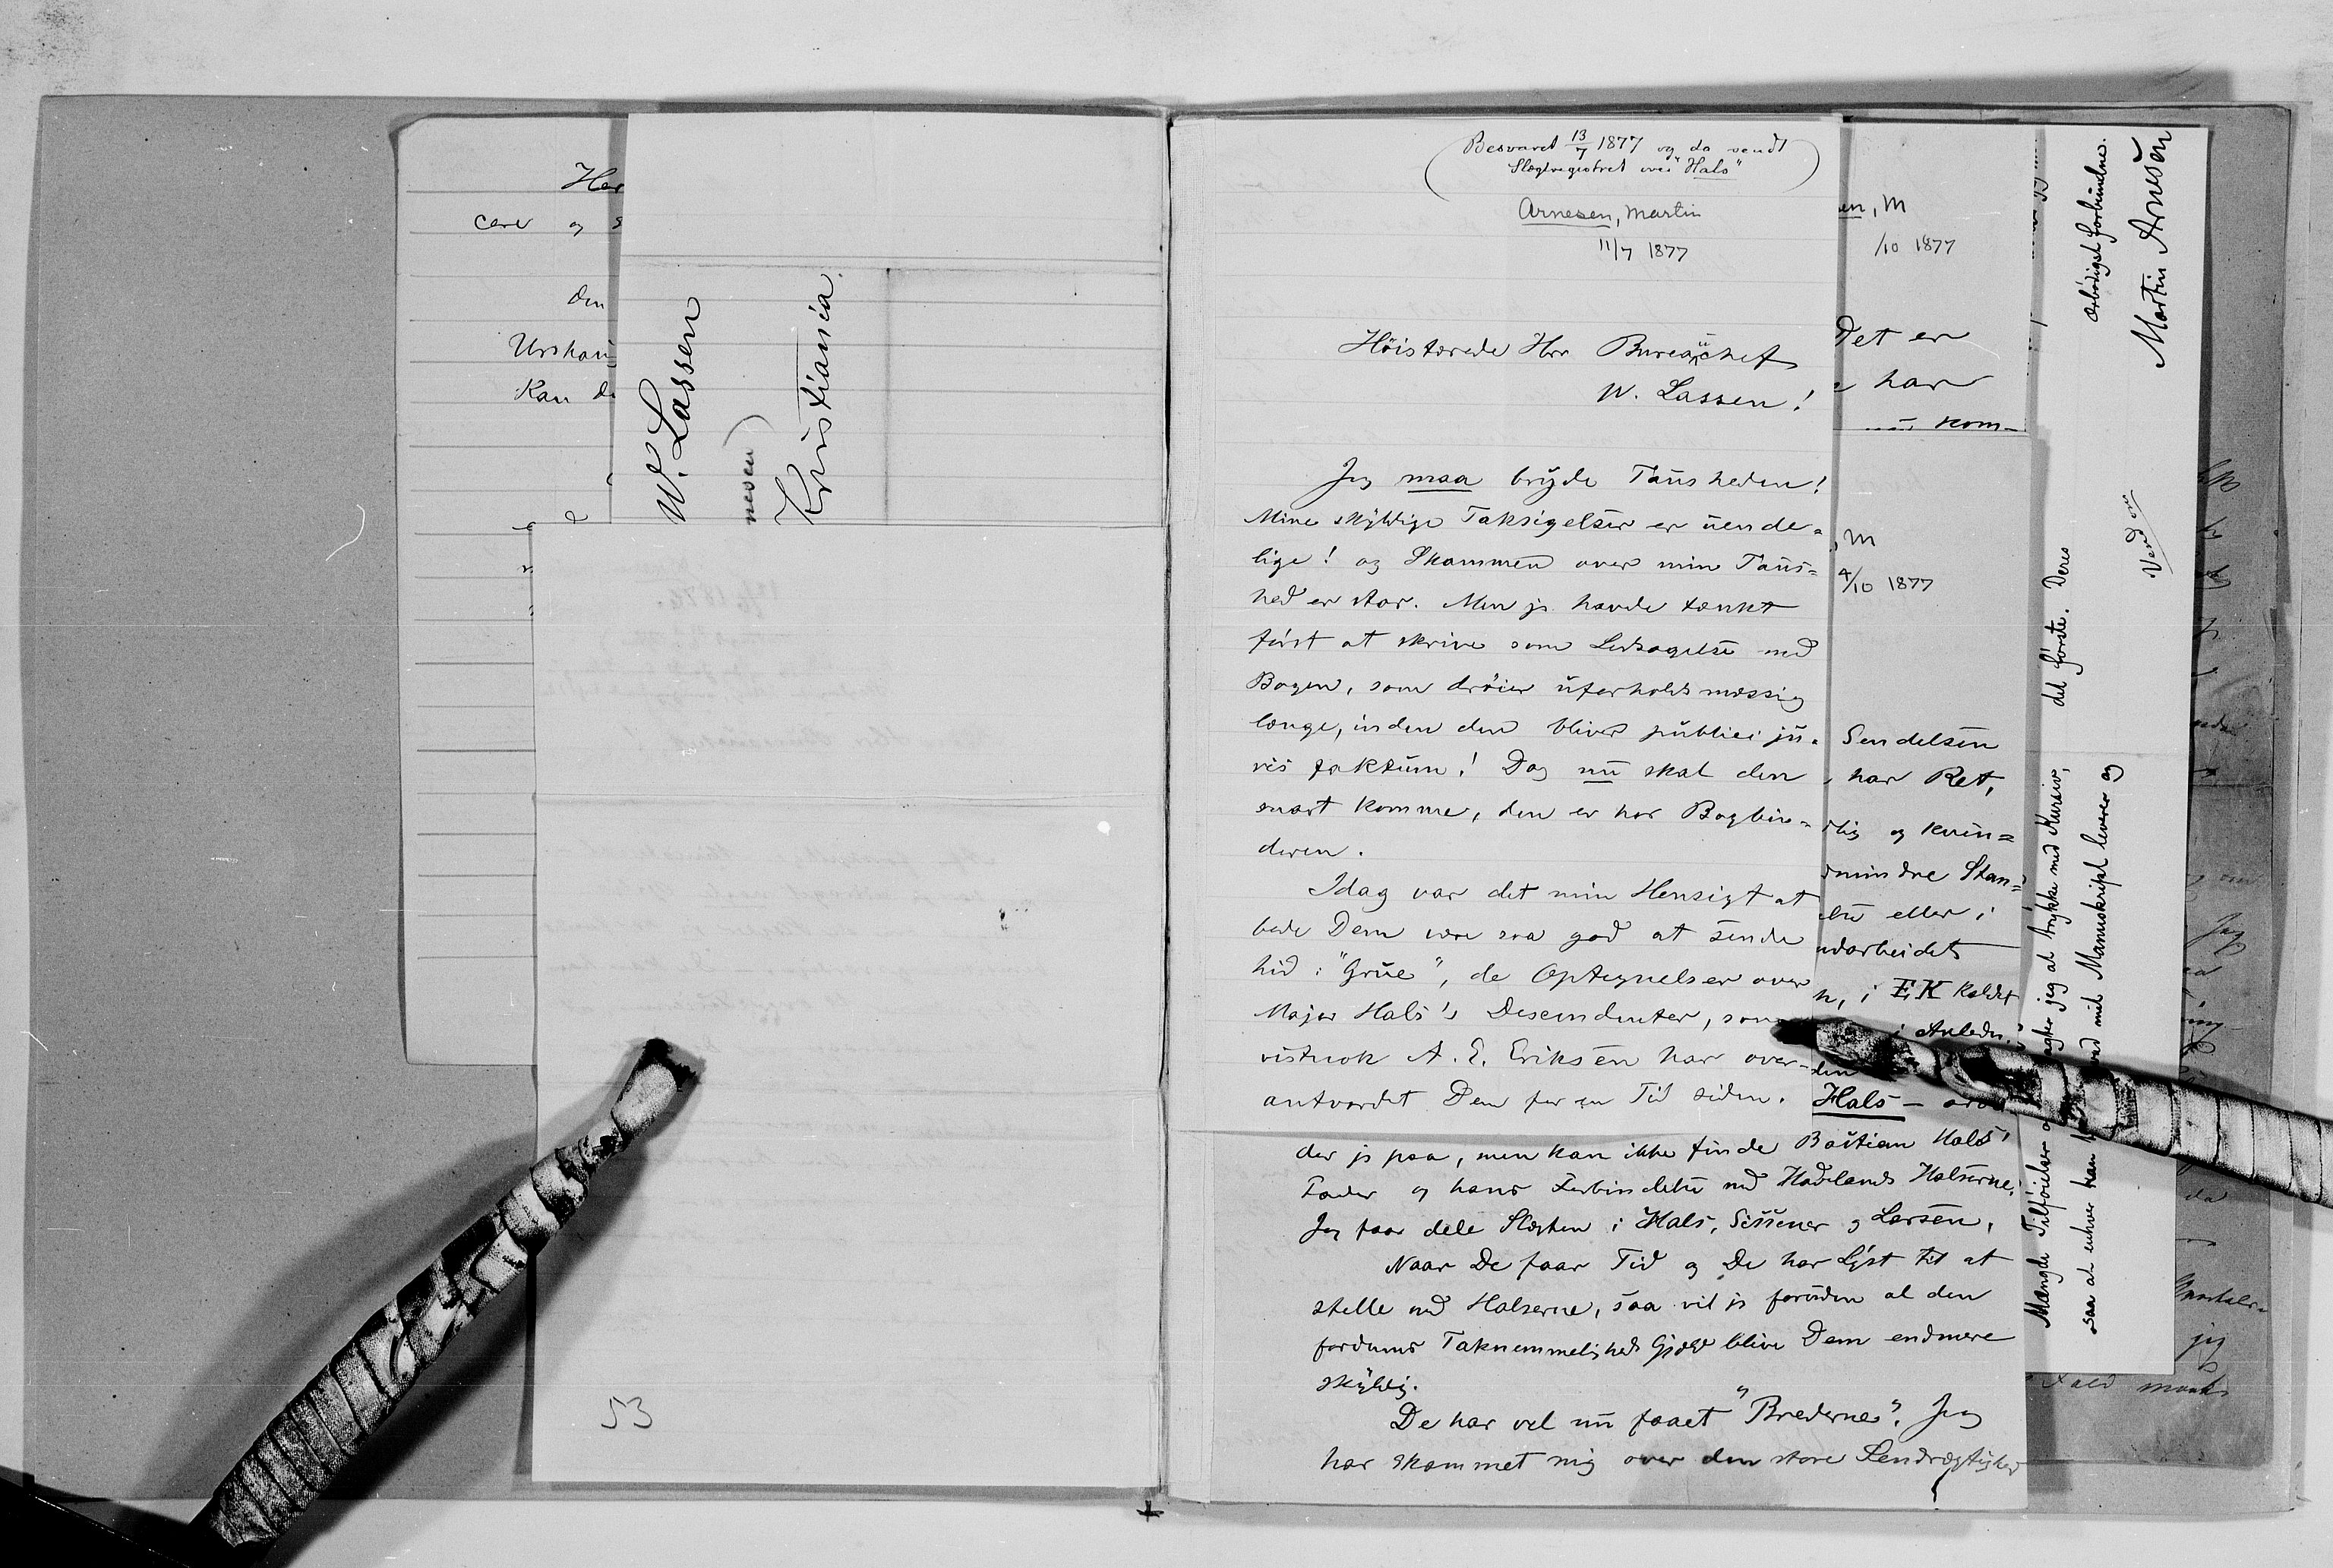 Her
cere og s
den
Urskou
Kan de
W. Lassen
nesen)
Kristiania.
53
(Besvaret 13/7 1877 og da sendt
Slægtregistret over "Hals")
Arnesen, Martin
11/7 1877
Höistærede Hrr Bureauchef
W. Lassen!
Jeg maa bryde Tausheden!
Mine skyldige Taksigelser er uende-
lige! og Skammen over min Taus-
hed er stor. Men jg havde tænkt
först at skrive som Ledsagelse med
Bogen, som dröier uforholdsmæssig
længe, inden den bliver publici ju-
ris faktum! Dog nu skal den
snart komme, den er hos Bogbin-
deren.
Idag var det min Hensigt at
bede Dem være saa god at sende
hid: "Grue", de Optegnelser over
Major Hals's Desendenter, som
vistnok A. E. Eriksen har over-
antvordet Dem for en Tid siden.
der jg paa, men kan ikke finde Bastian Hals'
Fader og hans Forbindelse med Hadelands Halserne.
Jeg faar dele Slægten i Hals, Sissener og Larsen,
Naar De faar Tid og De har Lyst til at
stelle med Halserne, saa vil jg foruden al den
fordums Taknemmelighed Gjæld blive Dem endmere
skyldig.
De har vel nu faaet "Brederne". Jeg
har skammet mig over den store Sendrægtighed
en, M
/10 1877
Det er
har
kom-
, M
4/10 1877
Sendelsen
har Ret,
og kvin=
dmindre Stan=
eller i
udarbeidet
n, i EK kaldet
i Anledn.
Hals –
Mængde Tilföielser
agter jeg at trykke med Kursiv,
det første. Deres
ærbødigst forbundne.
saa at enhver kan
ved mit Manuskript leverer og
Vend om
Martin Arnesen
Jeg
da
jeg